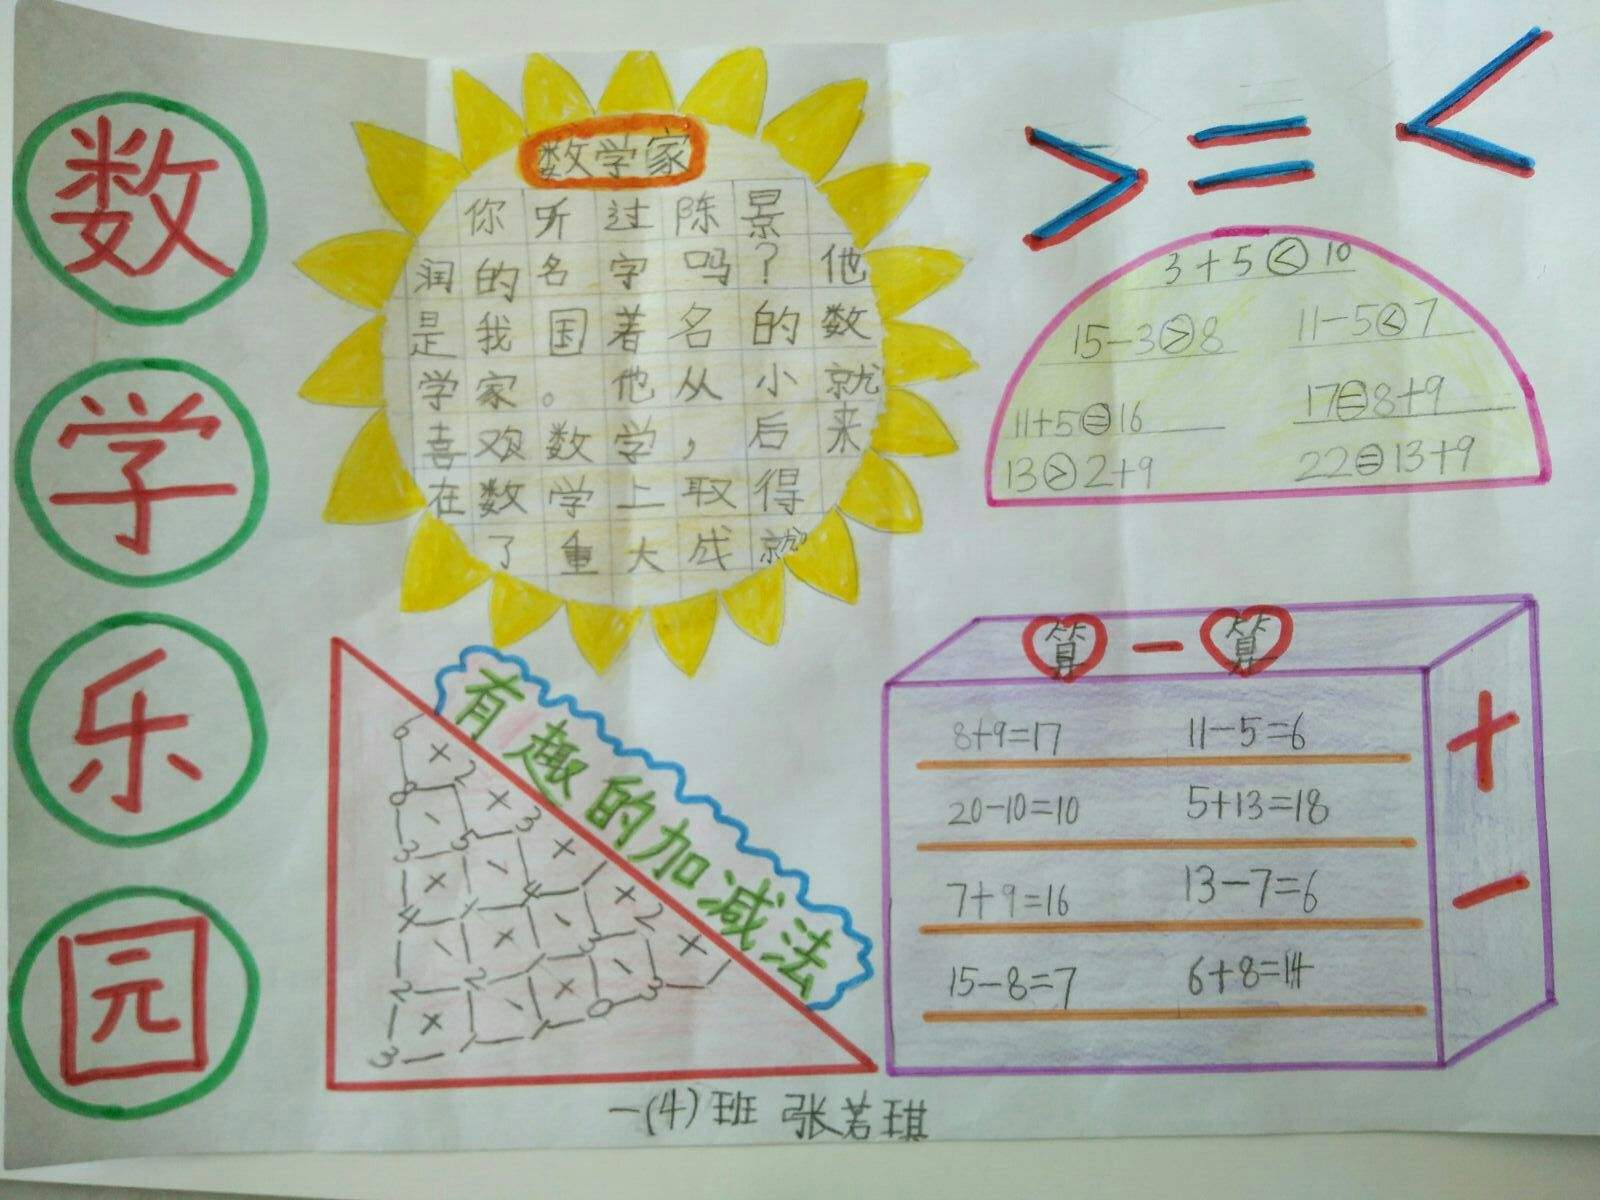 数
学
乐
园
数学家
你听过陈景
润的名字吗？他
是我国着名的数
学家。他从小就
喜欢数学，后来
在数学上取得
了重大成就
> = <
3+5<10
15-3>8 11-5<7
11+5=16 17=8+9
13>2+9 22=13+9
有趣的加减法
算-算
8+9=17 11-5=6
20-10=10 5+13=18
7+9=16 13-7=6
15-8=7 6+8=14
+
-
一(4)班 张若琪